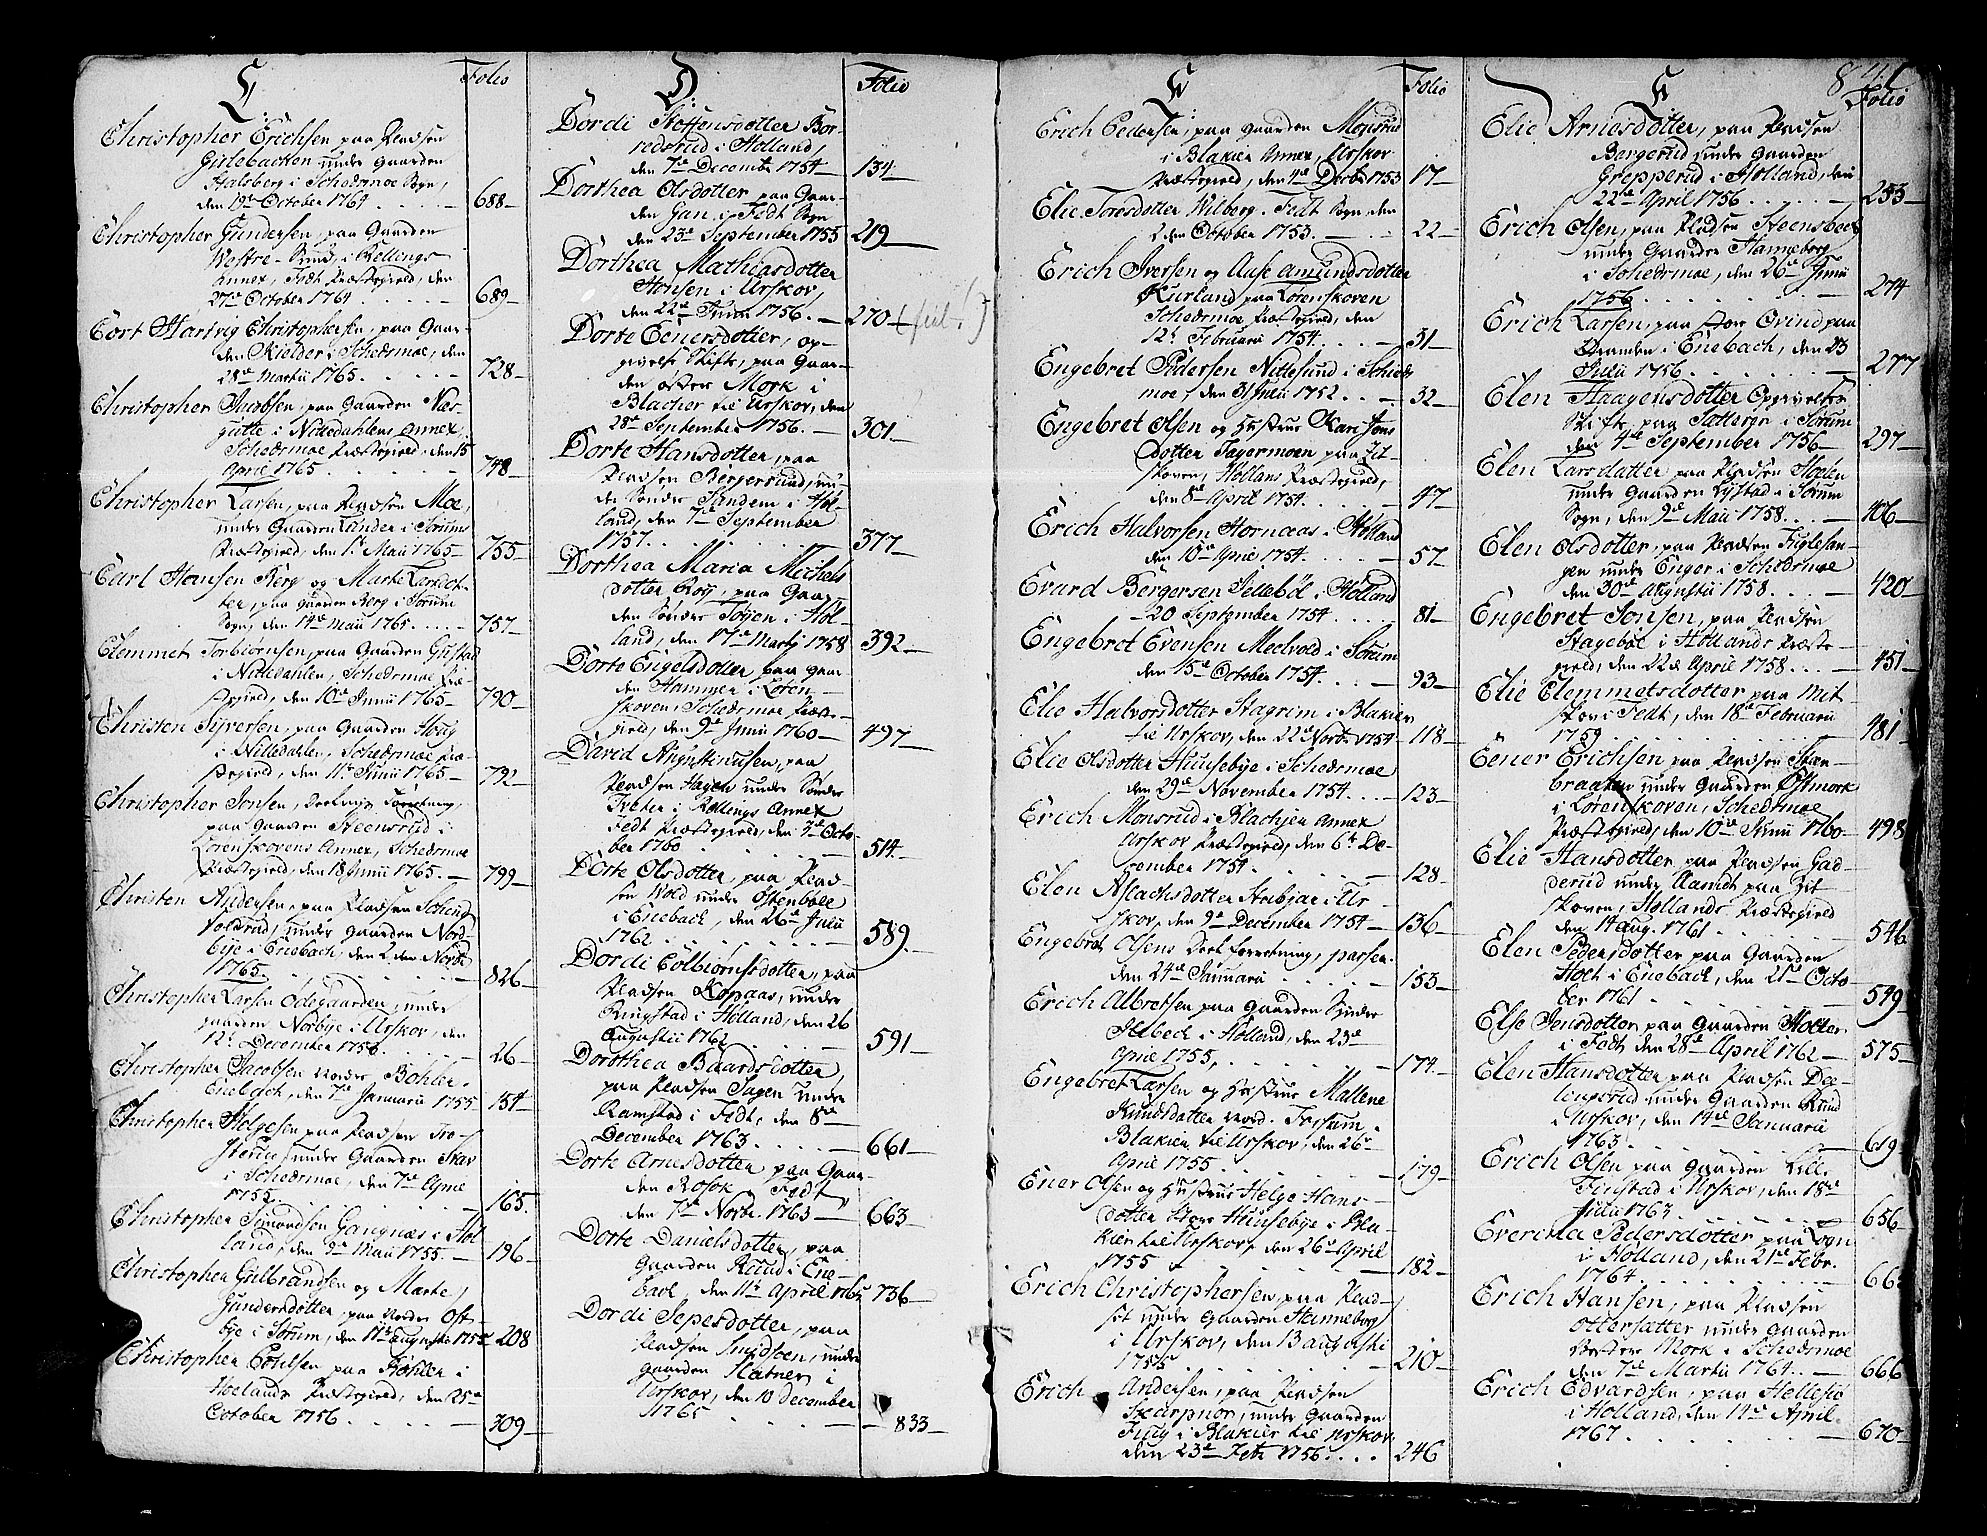 C: Folio
Christopher Erichsen paa Pladsen
Girlebacken under Gaarden
Halsberg i Schedsmoe Sogn,
den 19de October 1764 688
Christopher Gundersen, paa Gaarden
Westre i Rellings
Annex, Fedt Præstegield, den
27de October 1764 689
Cort Hartvig Christophersen, paa Gaar-
den Kielder i Schedsmoe, den
28de Martii 1765 728
Christopher Jacobsen, paa Gaarden Næs-
gutte i Nittedahlens Annex,
Schedsmoe Præstegield, den 15
April 1765 748
Christopher Larsen, paa Pladsen Moe,
under Gaarden Lander i Sørums
Præstegield, den 1te Maii 1765 755
Carl Hansen Berg og Marte Larsdot-
ter, paa Gaarden Berg i Sørum
Sogn, den 14de Maii 1765 757
Clemmet Torbiørnsen, paa Gaarden
i Nittedahlen, Schedsmoe Præ-
stegield, den 10de Junii 1765 790
Christen Syversen, paa Gaarden Houg
i Nittedahlen, Schedsmoe Præ-
stegield, den 11te Junii 1765 792
Christopher Jonsen,
paa Gaarden Steensrud i
Lørenskovens Annex, Schedsmoe
Præstegield, den 18 Junii 1765 799
Christen Andersen, paa Pladsen
under Gaarden Nord-
bye i Enebach, den 2den Novbr
1765 826
Christopher Larsen Ødegaarden, under
gaarden Norbye i Urskov, den
12te December 1756 26
Christopher Jacobsen Nordre Bøhler
Enebach, den 7de Januarii 1755 154
Christopher Helgesen paa Pladsen
under Gaarden Skar
i Schedsmoe, den 7de
1755 165
Christopher Simonsen Gangnæs i Hol-
land, den 9de Maii 1755 196
Christopher Gulbrandsen og Marte
Gundersdotter, paa Nordre Ost-
bye i Sørum, den 11te Augusti 208
Christopher Colsen paa Bøhler i
Hoelands Præstegield, den 25de
October 1756 309
D: Folio
Dordi Stoffensdotter Bor-
redsrud i Holland,
den 7de Decemb 1754 134
Dorthea Olsdotter paa Gaar-
den Gan i Fedt Sogn
den 23de September 1755 219
Dorthea Mathiasdotter
Honsen i Urskov,
den 22de Junii 1756 270
Dorte Eenersdotter, op-
givelse Skifte, paa Gaar-
den østre Mork i
Blacher til Urskov, den
28de September 1756 301
Dorte Hansdotter, paa
Pladsen Bergersund, un-
der Søndre Sundem i Høl-
land, den 7de September
1757 377
Dorthea Maria Michels
dotter Croy, paa Gaar-
den Søndre Tøyen i Høl-
land, den 17de Martii 1758 392
Dorte Engelsdotter, paa Gaar
den Hammer i Løren-
skoven i Schedsmoe Præste-
gield, den 9de Junii 1760 497
David Augustinusen, paa
Pladsen Hagen under Søndre
i Rellings Annex
Fedt Præstegield, den 3de Octo-
ber 1760 514
Dorte Olsdotter, paa Plad-
sen Wold under Østenbøle
i Enebach, den 26de Julii
1762 589
Dordi Colbiørnsdotter, paa
Pladsen Kopaas, under
Ringstad i Holland, den 26
Augustii 1762 591
Dorothea Baardsdotter,
paa Pladsen Sagen under
Ramstad i Fedt, den 8de
December 1763 661
Dorte Arnesdotter paa Gaar-
den Rosok Fedt
den 7de Novbr. 1763 663
Dorte Danielsdotter, paa
Gaarden Ruud i Ene-
bach, den 11te April 1765 736
Dordi Jepesdotter, paa
Pladsen Smidsoen, under
gaarden Slatner, i
Urskov, den 10 december
1765 833
E Folio
Erich Pedersen, paa Gaarden Monsrud
i Blakier Annex, Urskov
Præstegield, den 4de Decbr 1753 17
Elie Toresdotter Wilberg. Fedt Sogn den
2den October 1753 22
Erich Iversen og Aase Amundsdotter
Kurland paa Lørenskoven
Schedsmoe Præstegield, den
12te Februarii 1754 31
Engebret Pedersen Nittesund i Scheds
moe, den 31 Junii 1752 32
Engebret Olsen og Hustrue Kari Jons
dotter Fagermoen paa Fit-
skoven, Hollands Præstegield,
den 8de April 1754 47
Erich Halvorsen Hornaas i Holland
den 10de April 1754 57
Evard Bergersen Tellebøl i Holland
20 September 1754 81
Engebret Evensen Medvold i Sørum
den 15de October 1754 93
Elie Halvorsdotter Stagrim i Blakier
til Urskov, den 22de Novbr. 1754 118
Elie Olsdotter Huusebye i Schedsmoe
den 29de November 1754 123
Erich Monsrud i Blachjer Annex
Urskov Præstegield, den 6te De-
cember 1754 128
Elen Aslachsdotter Habjør i Ur-
skov, den 9de December 1754 136
Engebret Olsens
den 24de Januarii 153
Erich Albretsen paa Gaarden Søndre
Jelbeck i Holland, den 23de
April 1755 174
Engebret Larsen og Hustrue Mallene
Knudsdotter Nord. Fossum
Blakier til Urskov, den 26de
April 1755 179
Ener Olsen og Hustrue Helge Hans-
dotter Huusebye i Bla-
kier til Urskov, den 26de April
1755 182
Erich Christophersen paa Plad-
set under Gaarden Henneberg
i Urskov, den 13 Augusti
1755 210
Erich Andersen, paa Pladsen
Skarpnor, under Gaarden
Fuug i Blakier til Urskov
den 23de Feb. 1756 246
E 841 Folio
Elie Arnesdotter, paa Pladsen
Bergerud under Gaarden
Grepperud i Holland, den
22de April 1756 255
Erich Olsen, paa Pladsen Steensbeck
under Gaarden Stanneberg
i Schedsmoe, den 26de Junii
1756 274
Erich Larsen, paa Store Qvind paa
Dramlen i Enebach, den 23
Julii 1756 277
Elen Haagensdotter Opgivelses
Skifte, paa Satteren i Sørum
den 4de September 1756 297
Elen Larsdatter paa Pladsen Hoelen
under Gaarden Lystad i Sørum
Sogn, den 9de Maii 1758 406
Elen Olsdotter, paa Pladsen Fuglesan-
gen under Enger i Schedsmoe
den 30de Augustii 1758 420
Engebret Jonsen, paa Pladsen
Stagebøl i Hollands Præste-
gield, den 22de April 1758 451
Elie Clemmetsdotter paa Mit-
skov i Fedt, den 18de Februarii
1759 481
Eener Erichsen paa Pladsen
braaten under Gaarden Østmork
i Lørenskoven, Schedsmoe
Præstegield, den 10de Junii 1760 498
Elie Hansdotter, paa Pladsen Gad-
derud under Aamdt paa Fit
skoven, Hollands Præstegield
den 14 Aug. 1761 546
Elen Pedersdotter paa Gaarden
Stoch i Enebach, den 21de Octo
ber 1761 549
Else Jensdotter paa Gaarden Holter
i Fedt den 28de April 1762 575
Elen Hansdotter paa Pladsen Dee-
lenserud under Gaarden Rund
i Urskov, den 14de Januarii
1763 619
Erich Olsen paa Gaarden Lille
Finstad i Urskov, den 18de
Julii 1763 656
Everina Pedersdotter paa Logn
i Holland, den 21de Febr.
1764 66
Erich Hansen, paa Pladsen
Ottersætter under Gaarden
Vestre Mork i Schedsmoe
den 7de Martii 1764 666
Erich Edvardsen, paa Hellesiø
i Holland, den 14de April
1767 670